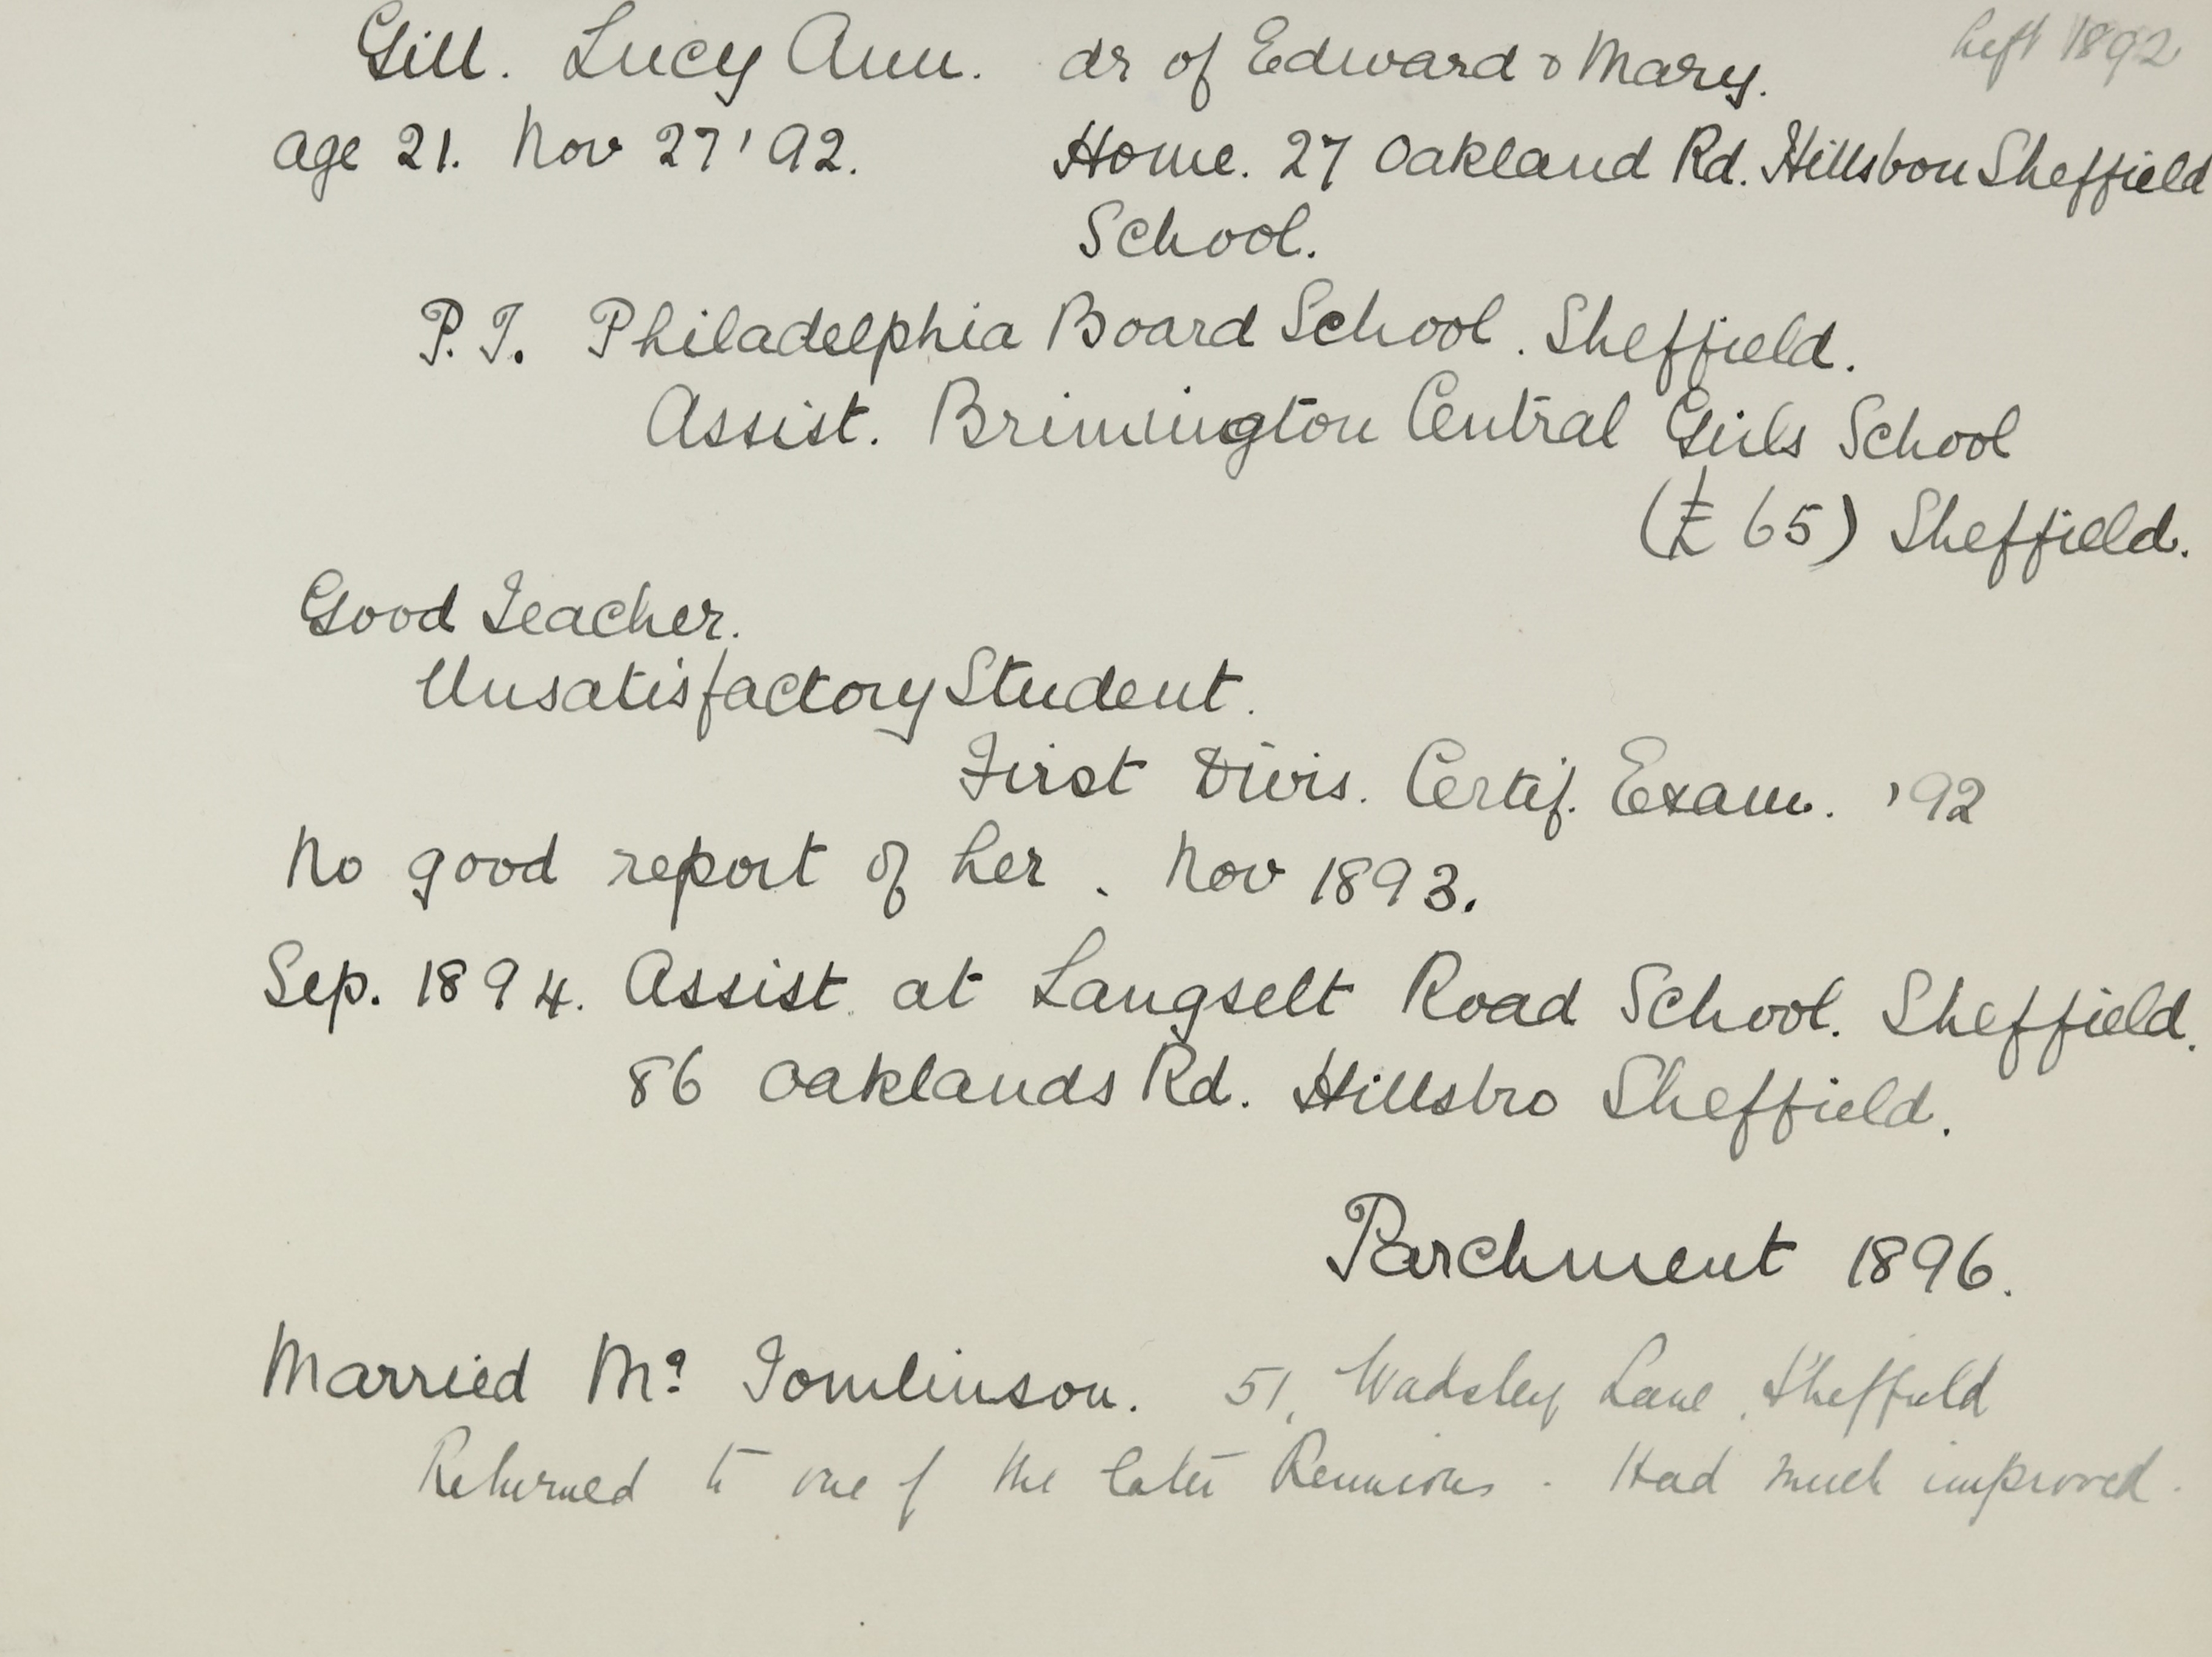 Gill. Lucy Ann. dr of Edward & Mary. left 1892
age 21. Nov 27 '92. Home. 27 Oakland Rd. Hillsbou Sheffield
School.
P.T. Philadelphia Board School. Sheffield.
Assist. Brimington Central Girls School
(£65) Sheffield.
Good Teacher.
Unsatisfactory Student.
First Divis. Certif. Exam. '92
No good report of her. Nov 1893.
Sep. 1894. Assist. at Langselt Road School. Sheffield.
86 Oaklands Rd. Hillsbro Sheffield.
Parchment 1896.
Married Mr Tomlinson. 51, Wadsley Lane, Sheffield
Returned to one of the later Reunions. Had much improved.